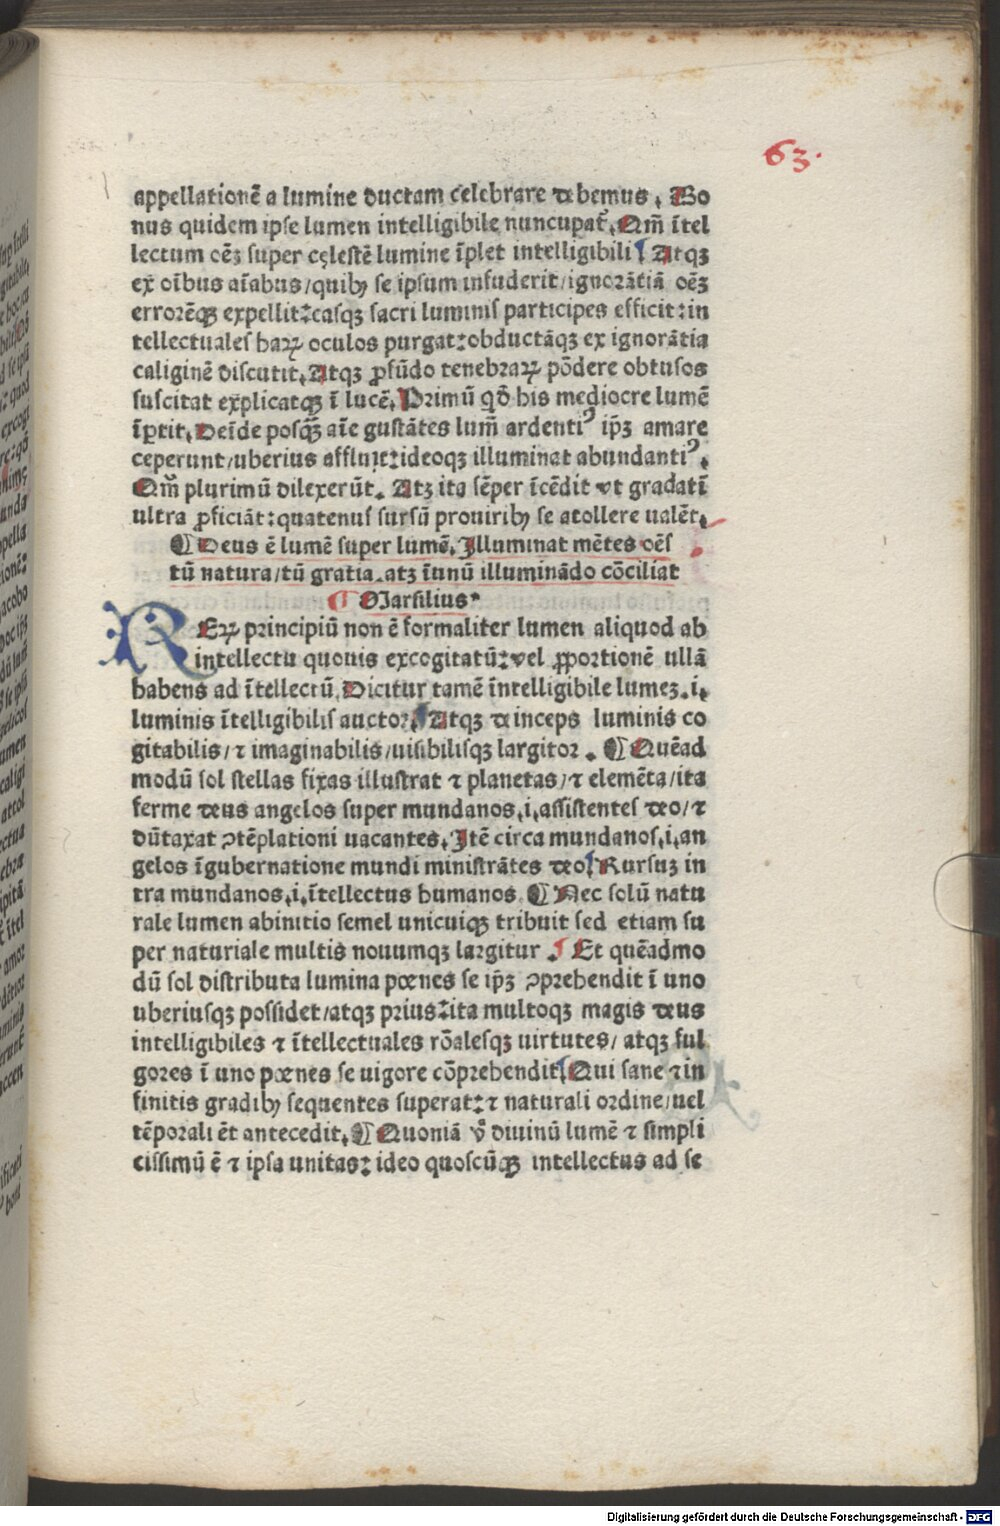 63.
appellationē a lumine ductam celebrare debemus. Bo
nus quidem ipse lumen intelligibile nuncupat᷑. Qm̄ ītel
lectum oēꝫ super cęlestē lumine īplet intelligibili Atqꝫ
ex oībus aīabus/quibꝫ se ipsum infuderit/ignorātiā oēꝫ
errorēqꝫ expellit:easqꝫ sacri luminis participes efficit:in
tellectuales haꝝ oculos purgat:obductāqꝫ ex ignorātia
caliginē discutit. Atqꝫ ꝓfūdo tenebraꝝ pōdere obtusos
suscitat explicatqꝫ ī lucē. Primū qͦd his mediocre lumē
īꝑtit. Deīde posqꝫ̄ aīe gustātes lum̄ ardentiꝰ ip̄ꝫ amare
ceperunt/uberius affluit:ideoqꝫ illuminat abundantiꝰ.
Qm̄ plurimū dilexerūt. Atꝫ ita sēper īcēdit vt gradatī
ultra ꝓficiāt:quatenus sursū prouiribꝫ se atollere ualēt.
¶ Deus ē lumē super lumē. Illuminat mētes oēs
tū natura/tū gratia.atꝫ īunū illuminādo cōciliat
¶ Marsilius
REꝝ principiū non ē formaliter lumen aliquod ab
intellectu quouis excogitatū:vel ꝓportionē ullā
habens ad ītellectū. Dicitur tamē īntelligibile lumeꝫ.i.
luminis ītelligibilis auctor. Atqꝫ deinceps luminis co
gitabilis/⁊ imaginabilis/uisibilisqꝫ largitor. ¶ Quēad
modū sol stellas fixas illustrat ⁊ planetas/⁊ elemēta/ita
ferme deus angelos super mundanos.i.assistentes deo/⁊
dūtaxat ꝯtēplationi uacantes. Itē circa mundanos.i.an
gelos īgubernatione mundi ministrātes deo Rursuꝫ in
tra mundanos.i.ītellectus humanos. ¶ Nec solū natu
rale lumen abinitio semel unicuiqꝫ tribuit sed etiam su
per naturiale multis nouumqꝫ largitur ¶ Et quēadmo
dū sol distributa lumina pœnes se ip̄ꝫ ꝯprehendit ī uno
uberiusqꝫ possidet/atqꝫ prius:ita multoqꝫ magis deus
intelligibiles ⁊ ītellectuales rōalesqꝫ uirtutes/ atqꝫ ful
gores ī uno pœnes se uigore cōprehendit Qui sane ⁊ in
finitis gradibꝫ sequentes superat:⁊ naturali ordine/uel
tēporali ēt antecedit. ¶ Quoniā vͦ diuinū lumē ⁊ simpli
cissimū ē ⁊ ipsa unitas: ideo quoscūqꝫ intellectus ad se
Digitalisierung gefördert durch die Deutsche Forschungsgemeinschaft - DFG